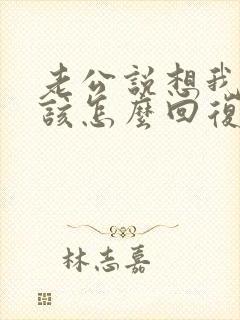 老公說想我
該怎麼回復
林志嘉